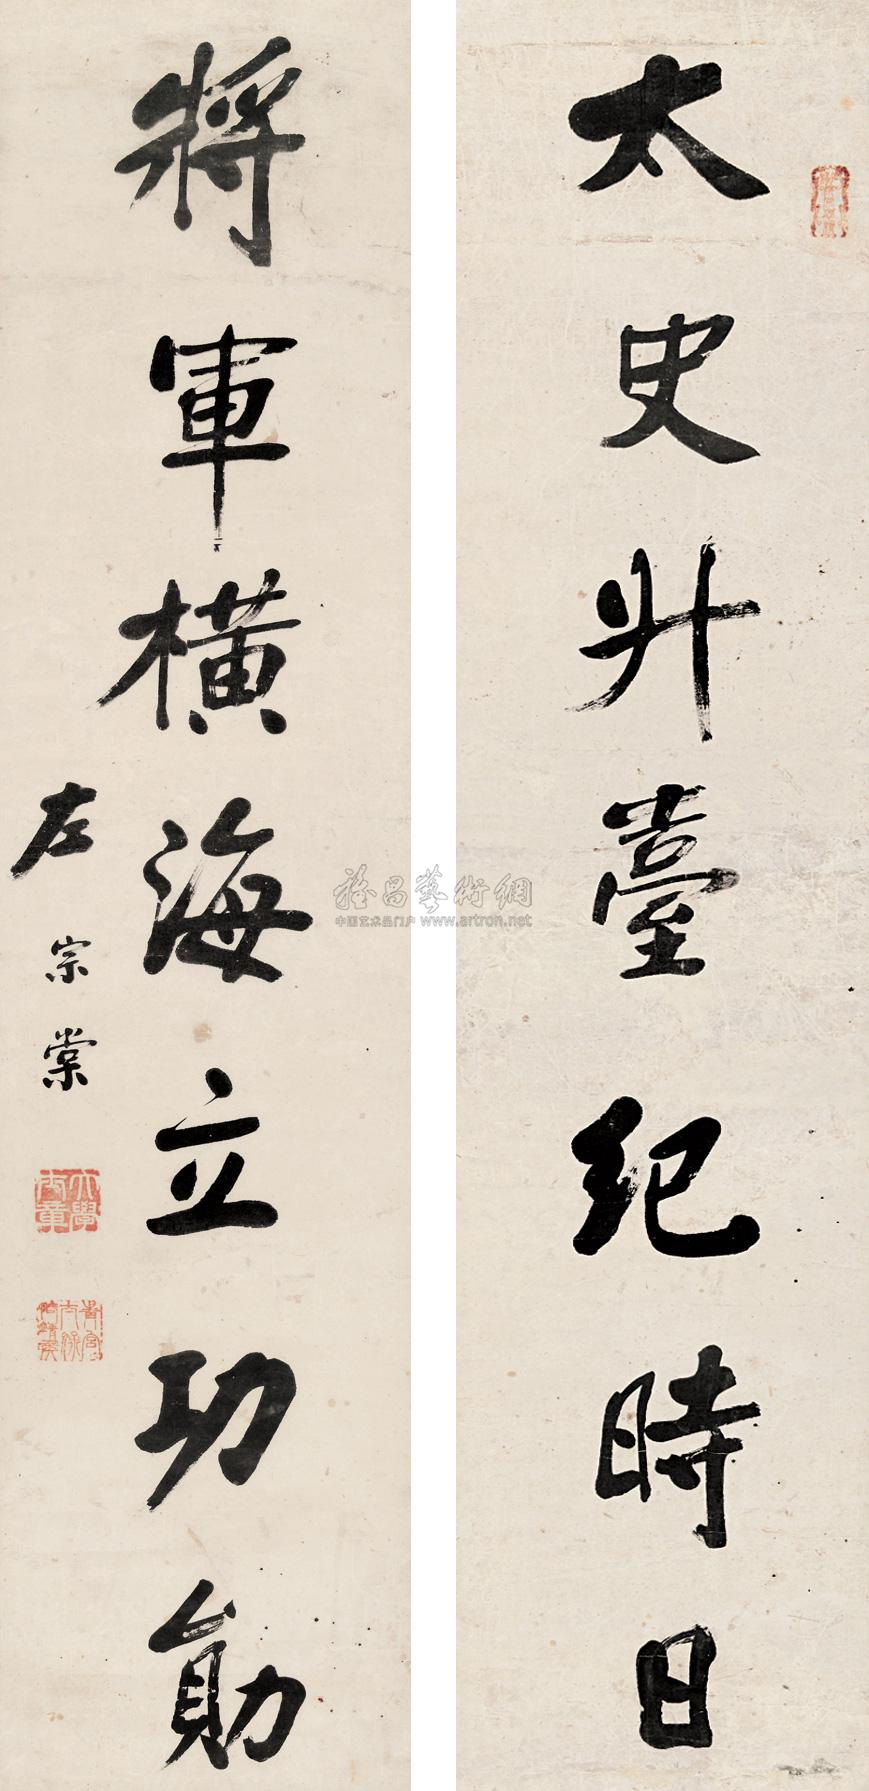 太史升臺紀時日
將軍橫海立功勛
左宗棠
大學士章
雅昌藝術網
中国艺术品门户 www.artron.net